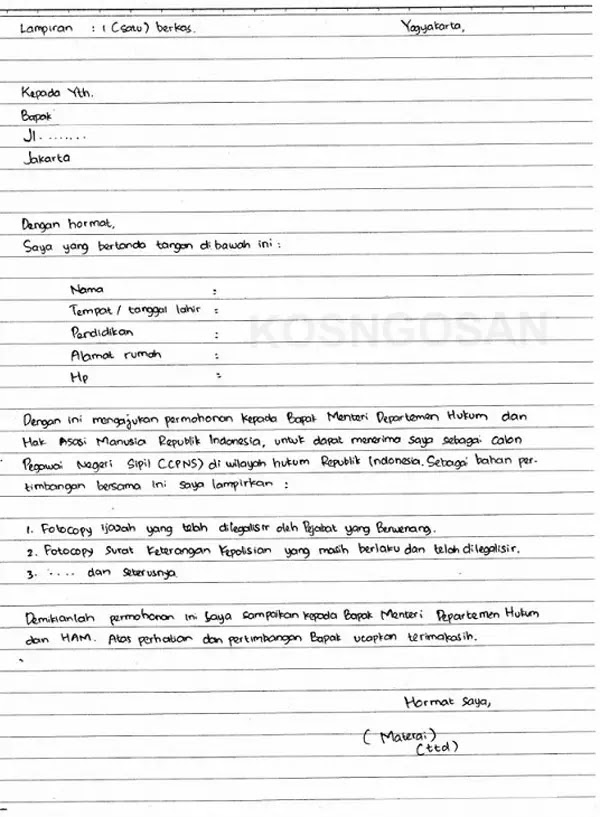 Lampiran : 1 (satu) berkas. Yogyakarta,
Kepada Yth.
Bapak
Jl. .......
Jakarta
Dengan hormat,
Saya yang bertanda tangan di bawah ini :
Nama :
Tempat / tanggal lahir :
Pendidikan :
KOSNGOSAN
Alamat rumah :
Hp :
Dengan ini mengajukan permohonan kepada Bapak Menteri Departemen Hukum dan
Hak Asasi Manusia Republik Indonesia, untuk dapat menerima saya sebagai Calon
Pegawai Negeri Sipil (CPNS) di wilayah hukum Republik Indonesia. Sebagai bahan per-
timbangan bersama ini saya lampirkan :
1. Fotocopy ijazah yang telah dilegalisir oleh Pejabat yang Berwenang.
2. Fotocopy Surat Keterangan Kepolisian yang masih berlaku dan telah dilegalisir.
3. ..... dan seterusnya
Demikianlah permohonan ini saya sampaikan kepada Bapak Menteri Departemen Hukum
dan HAM. Atas perhatian dan pertimbangan Bapak ucapkan terimakasih.
Hormat saya,
( Materai )
(ttd)